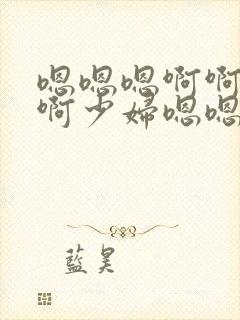 嗯嗯嗯啊啊
啊少婦嗯嗯
藍昊